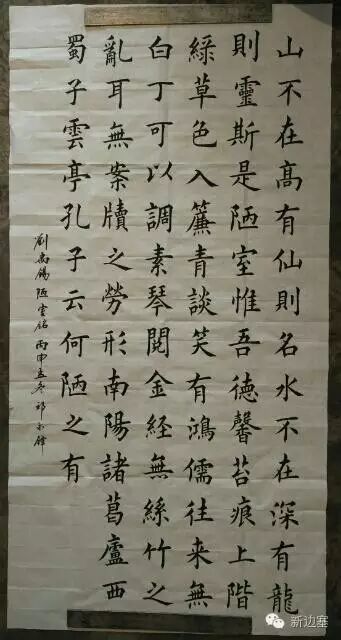 山不在髙有仙則名水不在深有龍
則靈斯是陋室惟吾德馨苔痕上階
綠草色入簾青談笑有鴻儒往来無
白丁可以調素琴閱金経無絲竹之
亂耳無案牘之勞形南陽諸葛廬西
蜀子雲亭孔子云何陋之有
劉禹錫陋室銘 丙申孟冬
新边塞